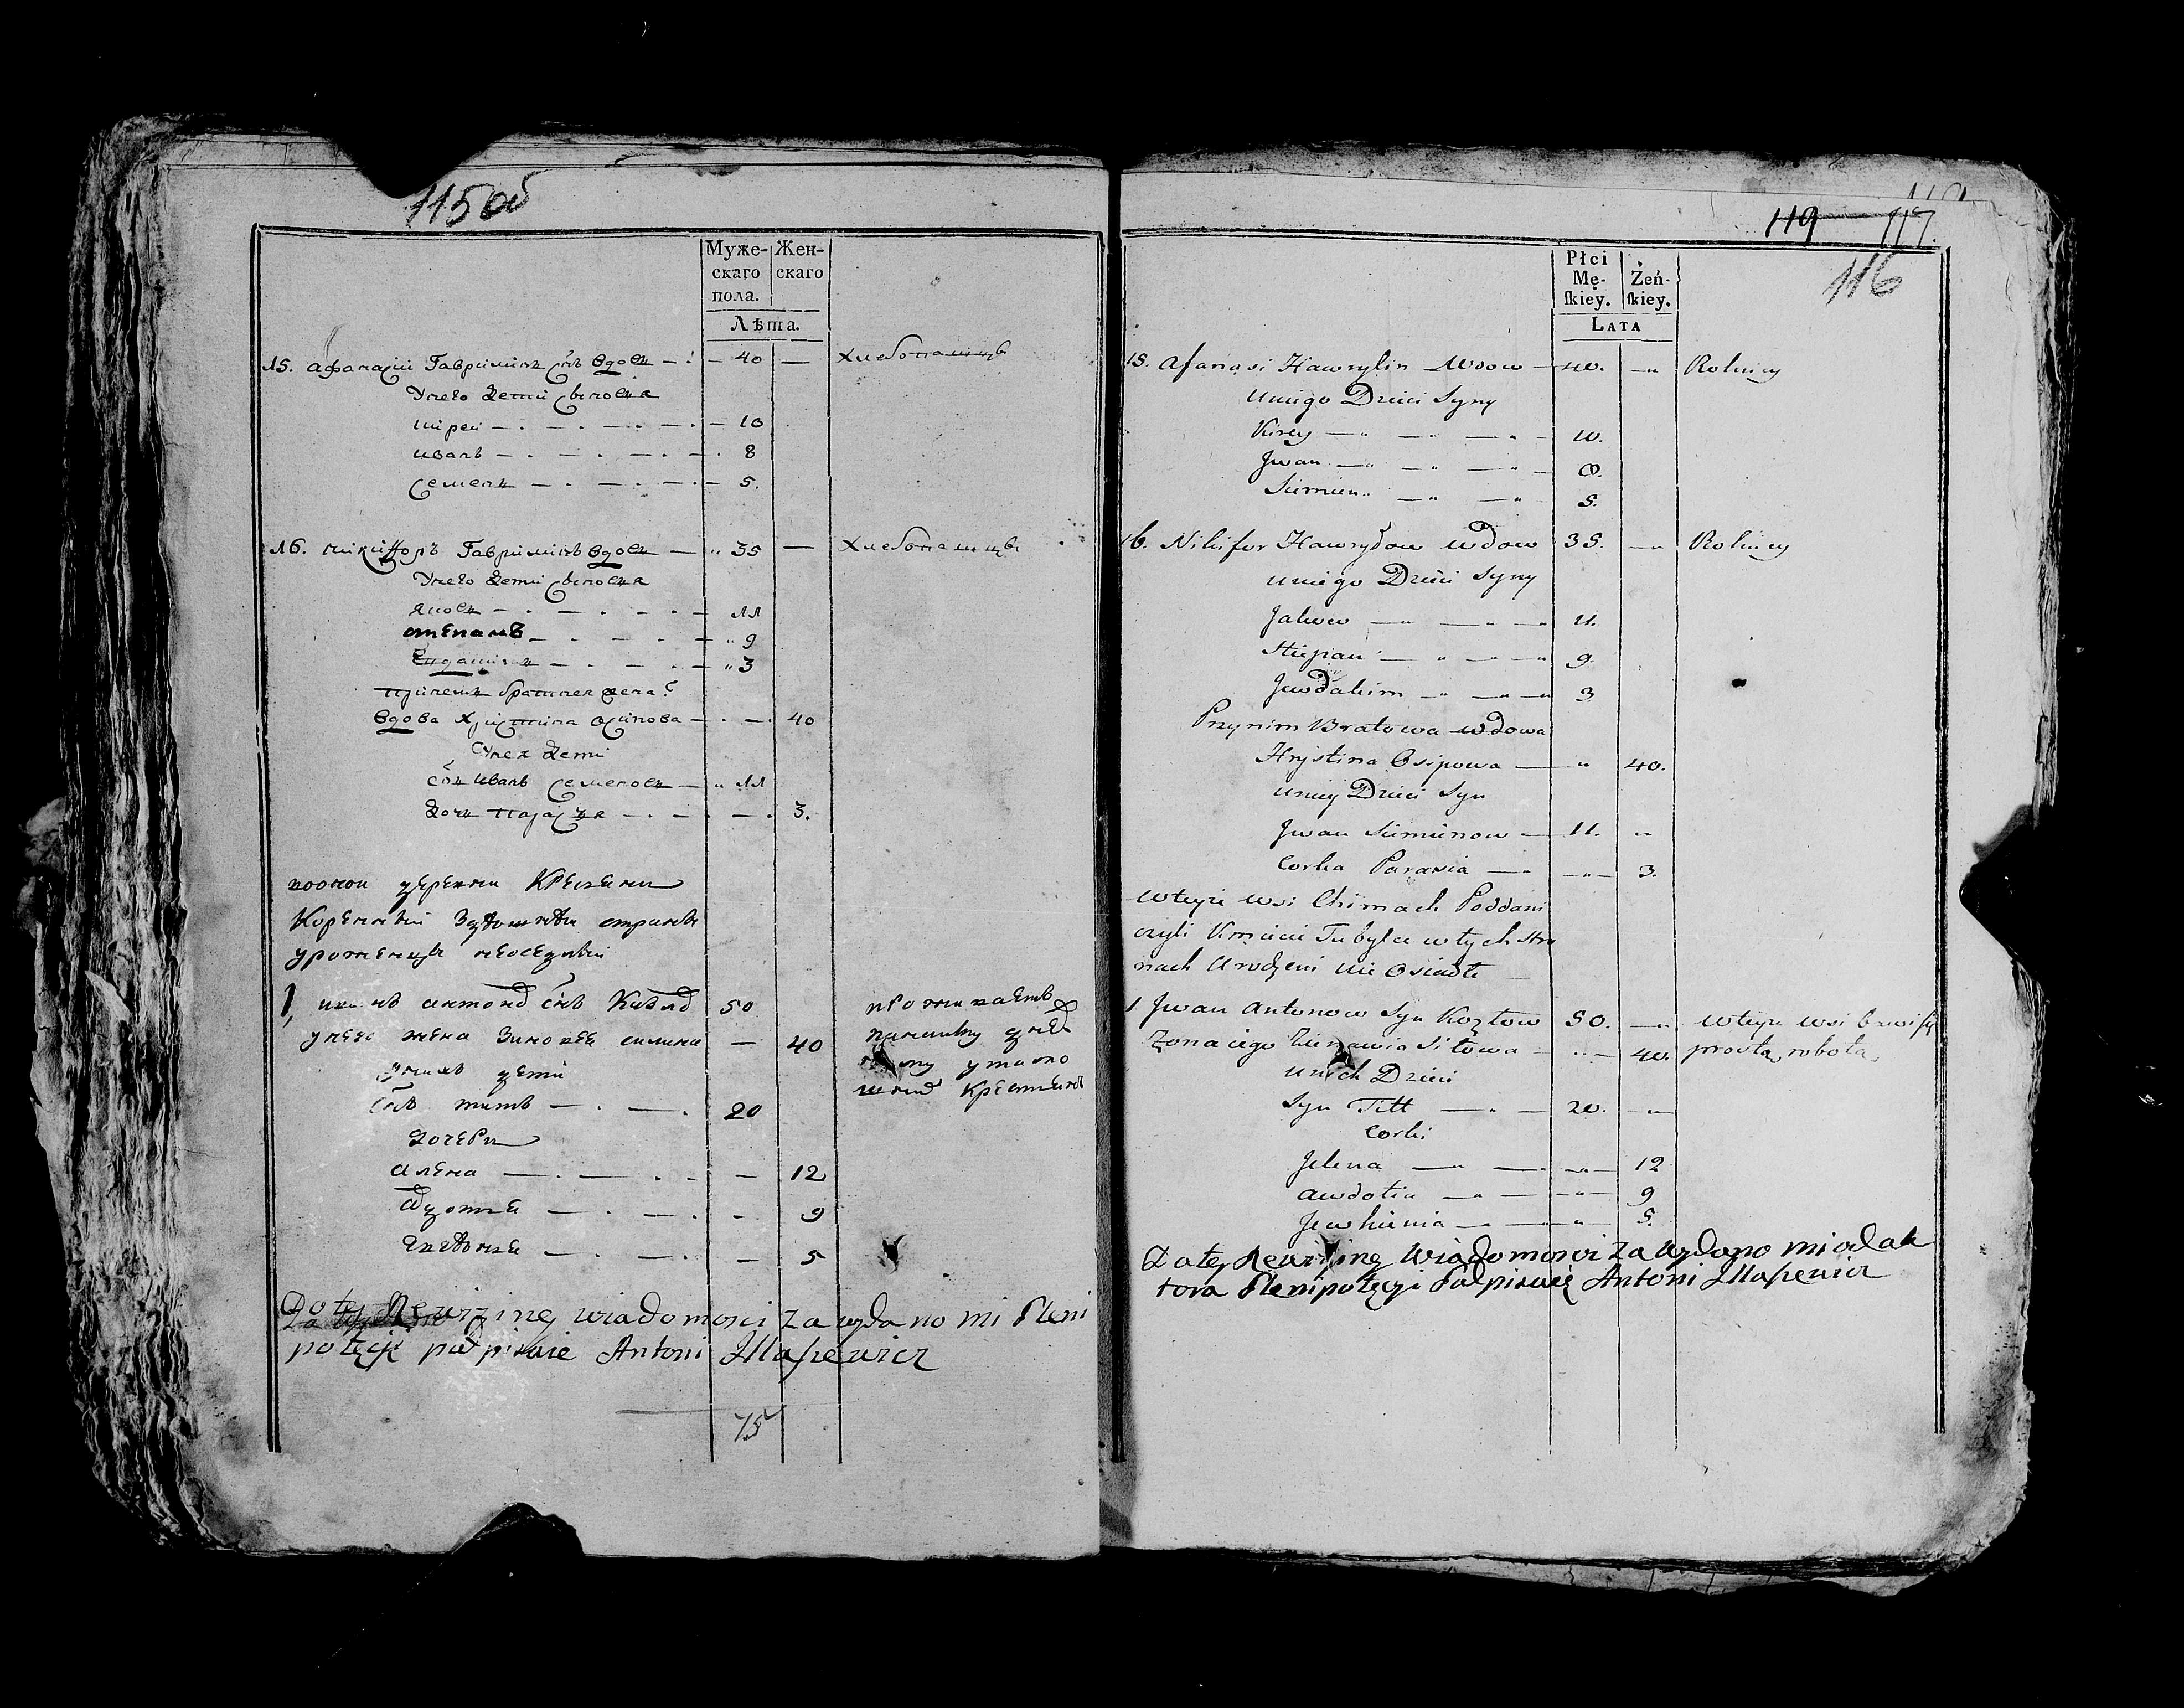 115 об
Муже-
скаго
пола.
Жен-
скаго
Лѣта.
15. Афанасiй Гаврилинъ Снъ вдовъ 40 — хлебопашцъ
Унего Дети Сыновья
10
иванъ 8
Семенъ 5.
16. никифоръ Гавриминъ вдовъ 35 — хлебопашцы
Унего Дети Сыновья
яковъ 11
степанъ 9
3
вдова Христина Осипова 40
Унея Дети
Снъ иванъ Семеновъ 11
Дочь Параскя 3.
деревни
Коренныи
уроженцы неоседлыи
1, антоновъ Снъ 50
унего жена Зиновея силина — 40
унихъ дети
Снъ титъ 20
дочери
алена — 12
авдотья — 9
— 5
Rewizyiney wiadomosci za wydano mi Pleni
potęcji podpisuie Antoni
75
119 117.
116
Płci
Mę-
ſkiey.
Żeń-
ſkiey.
Lata
15. Afanasi Hawrylin Wdow 40. — Rolnicy
Uniego Dzieci Syny
Kirey 10.
Jwan 8.
Siemien 5.
16. Nikifor Hawryłow wdow 35. — Rolnicy
Uniego Dzieci Syny
Jakow 11.
Stiepan 9.
Jewdakim 3
Przynim Bratowa wdowa
Hrystina Osipowa 40.
Uniey Dzieci Syn
Jwan Siemionow 11.
Corka Parasia 3.
wteyże wsi Chimach Poddani
czyli Kmieci Tubylcy wtych stro
nach Urodzeni nie Osiadłi
1 Jwan Antonow Syn Kozłow 50. — wteyże wsi
Żona iego Zienawia Siłowa 40. prostą robotą
Unich Dzieci
Syn Titt 20.
Corki
Jelena 12
Awdotia 9
Jewhienia 5.
Datey Rewizyiney Wiadomosci za wydano mi od ak
tora Plenipotęcji Podpisuię Antoni